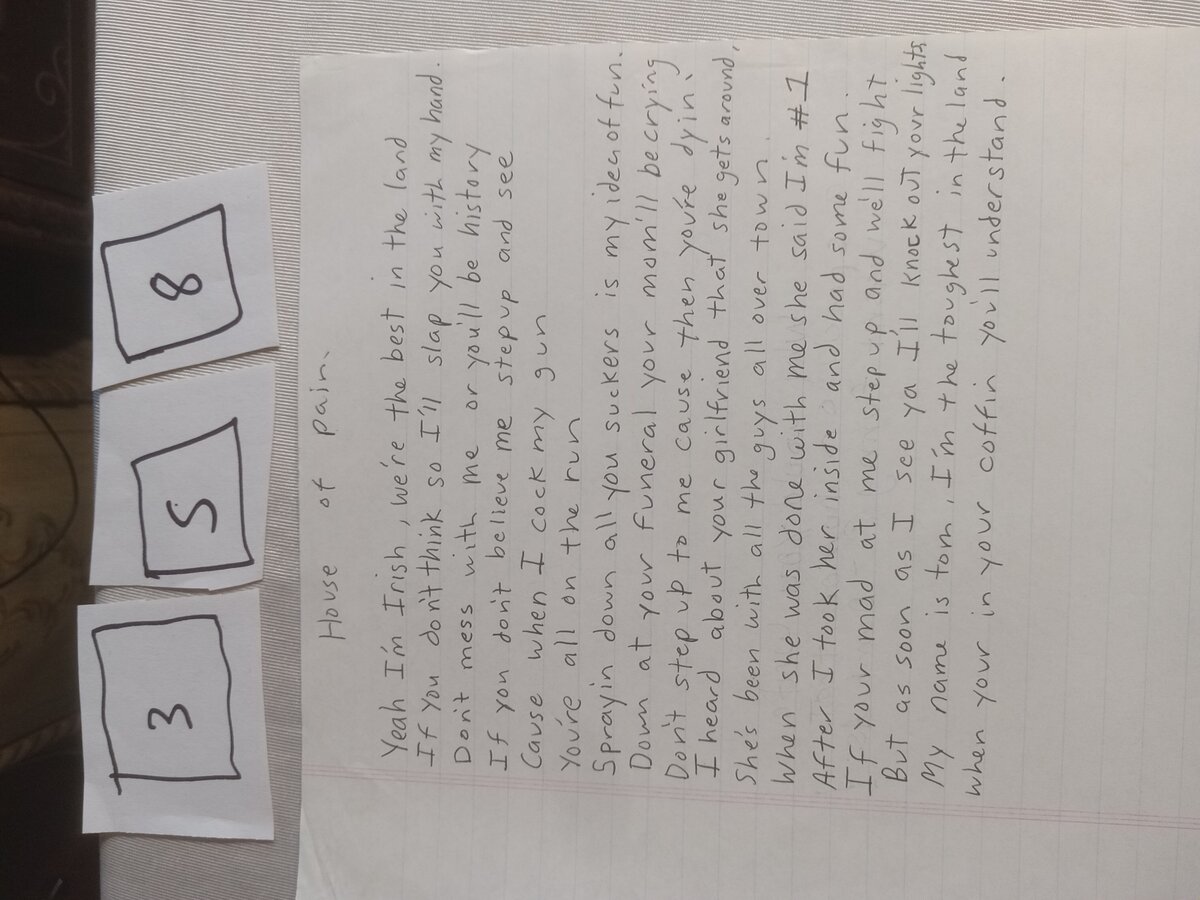 3 5 8
House of pain.
Yeah I'm Irish, we're the best in the land
If you don't think so I'll slap you with my hand.
Don't mess with me or you'll be history
If you don't believe me step up and see
Cause when I cock my gun
You're all on the run
Sprayin down all you suckers is my idea of fun.
Down at your funeral your mom'll be crying
Don't step up to me cause then you're dyin.
I heard about your girlfriend that she gets around,
She's been with all the guys all over town.
When she was done with me she said I'm #1
After I took her inside and had some fun.
If your mad at me step up and we'll fight
But as soon as I see ya I'll knock out your lights
My name is tom, I'm the toughest in the land
when your in your coffin you'll understand.